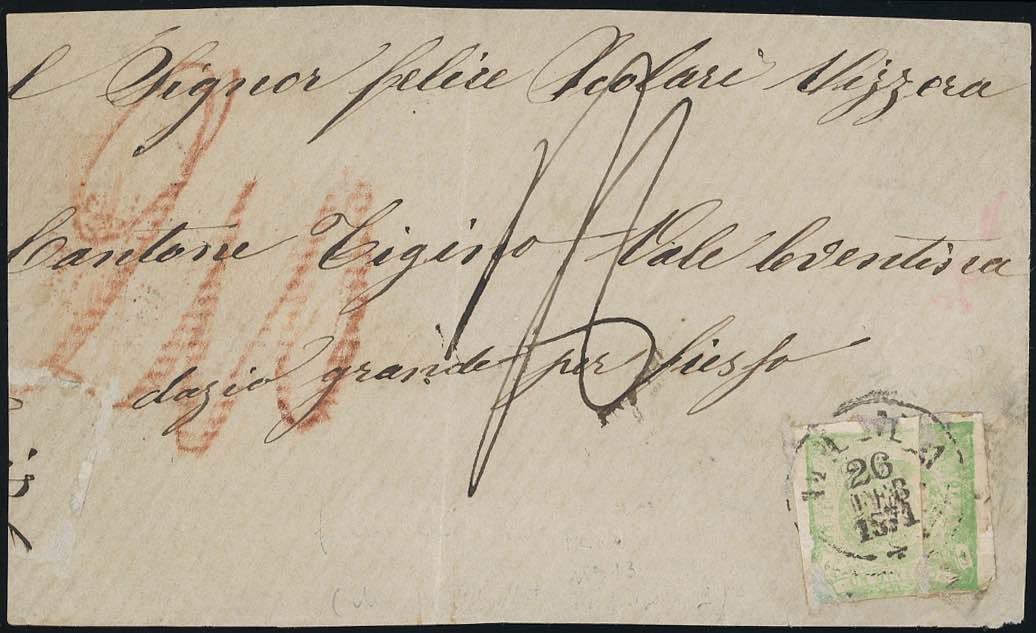 l Signor felice Scolari Svizzera
Cantone Tigino Vale leventina
dazio grande per fiesso
26
1871